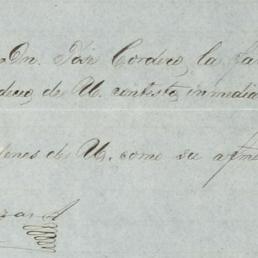 Dn. José Cordero, la fa
de U. contesta inmedia
de U. como su afmo